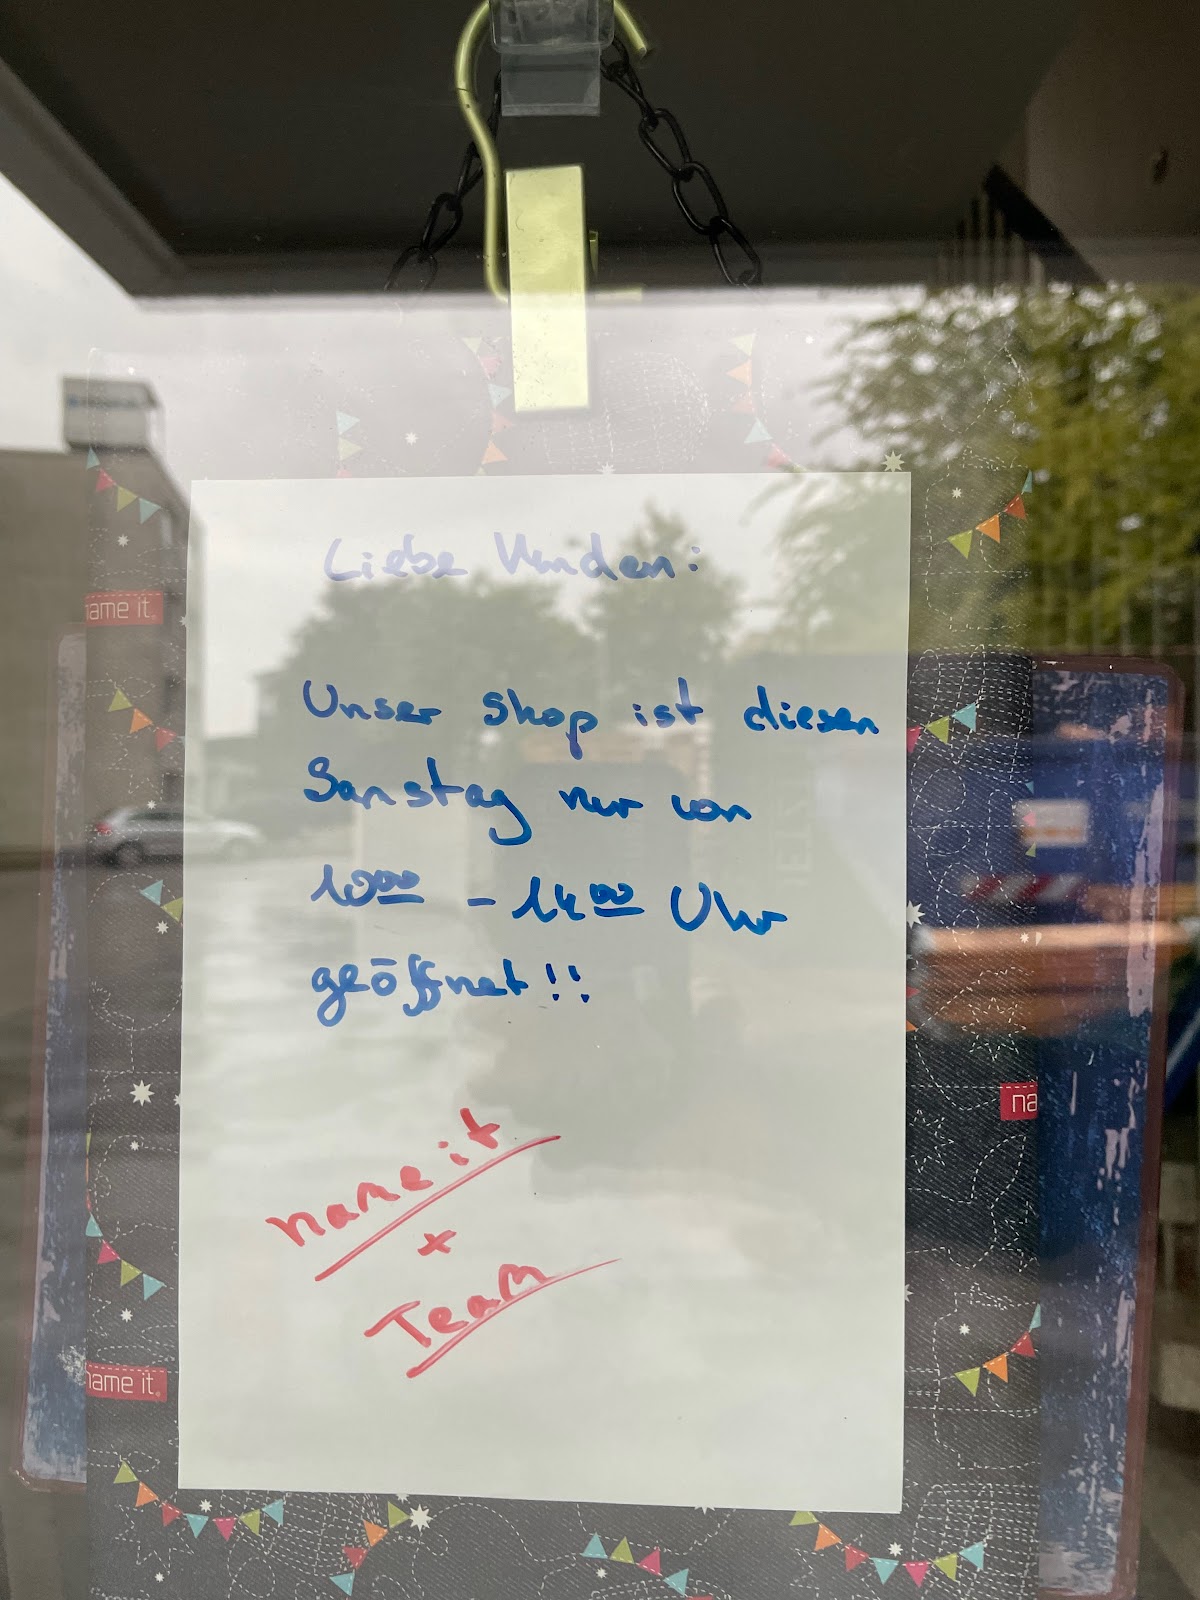 Liebe Kunden:
Unser Shop ist diesen
Samstag nur von
10⁰⁰ - 14⁰⁰ Uhr
geöffnet!!
name it
+
Team
name it.
name it.
na